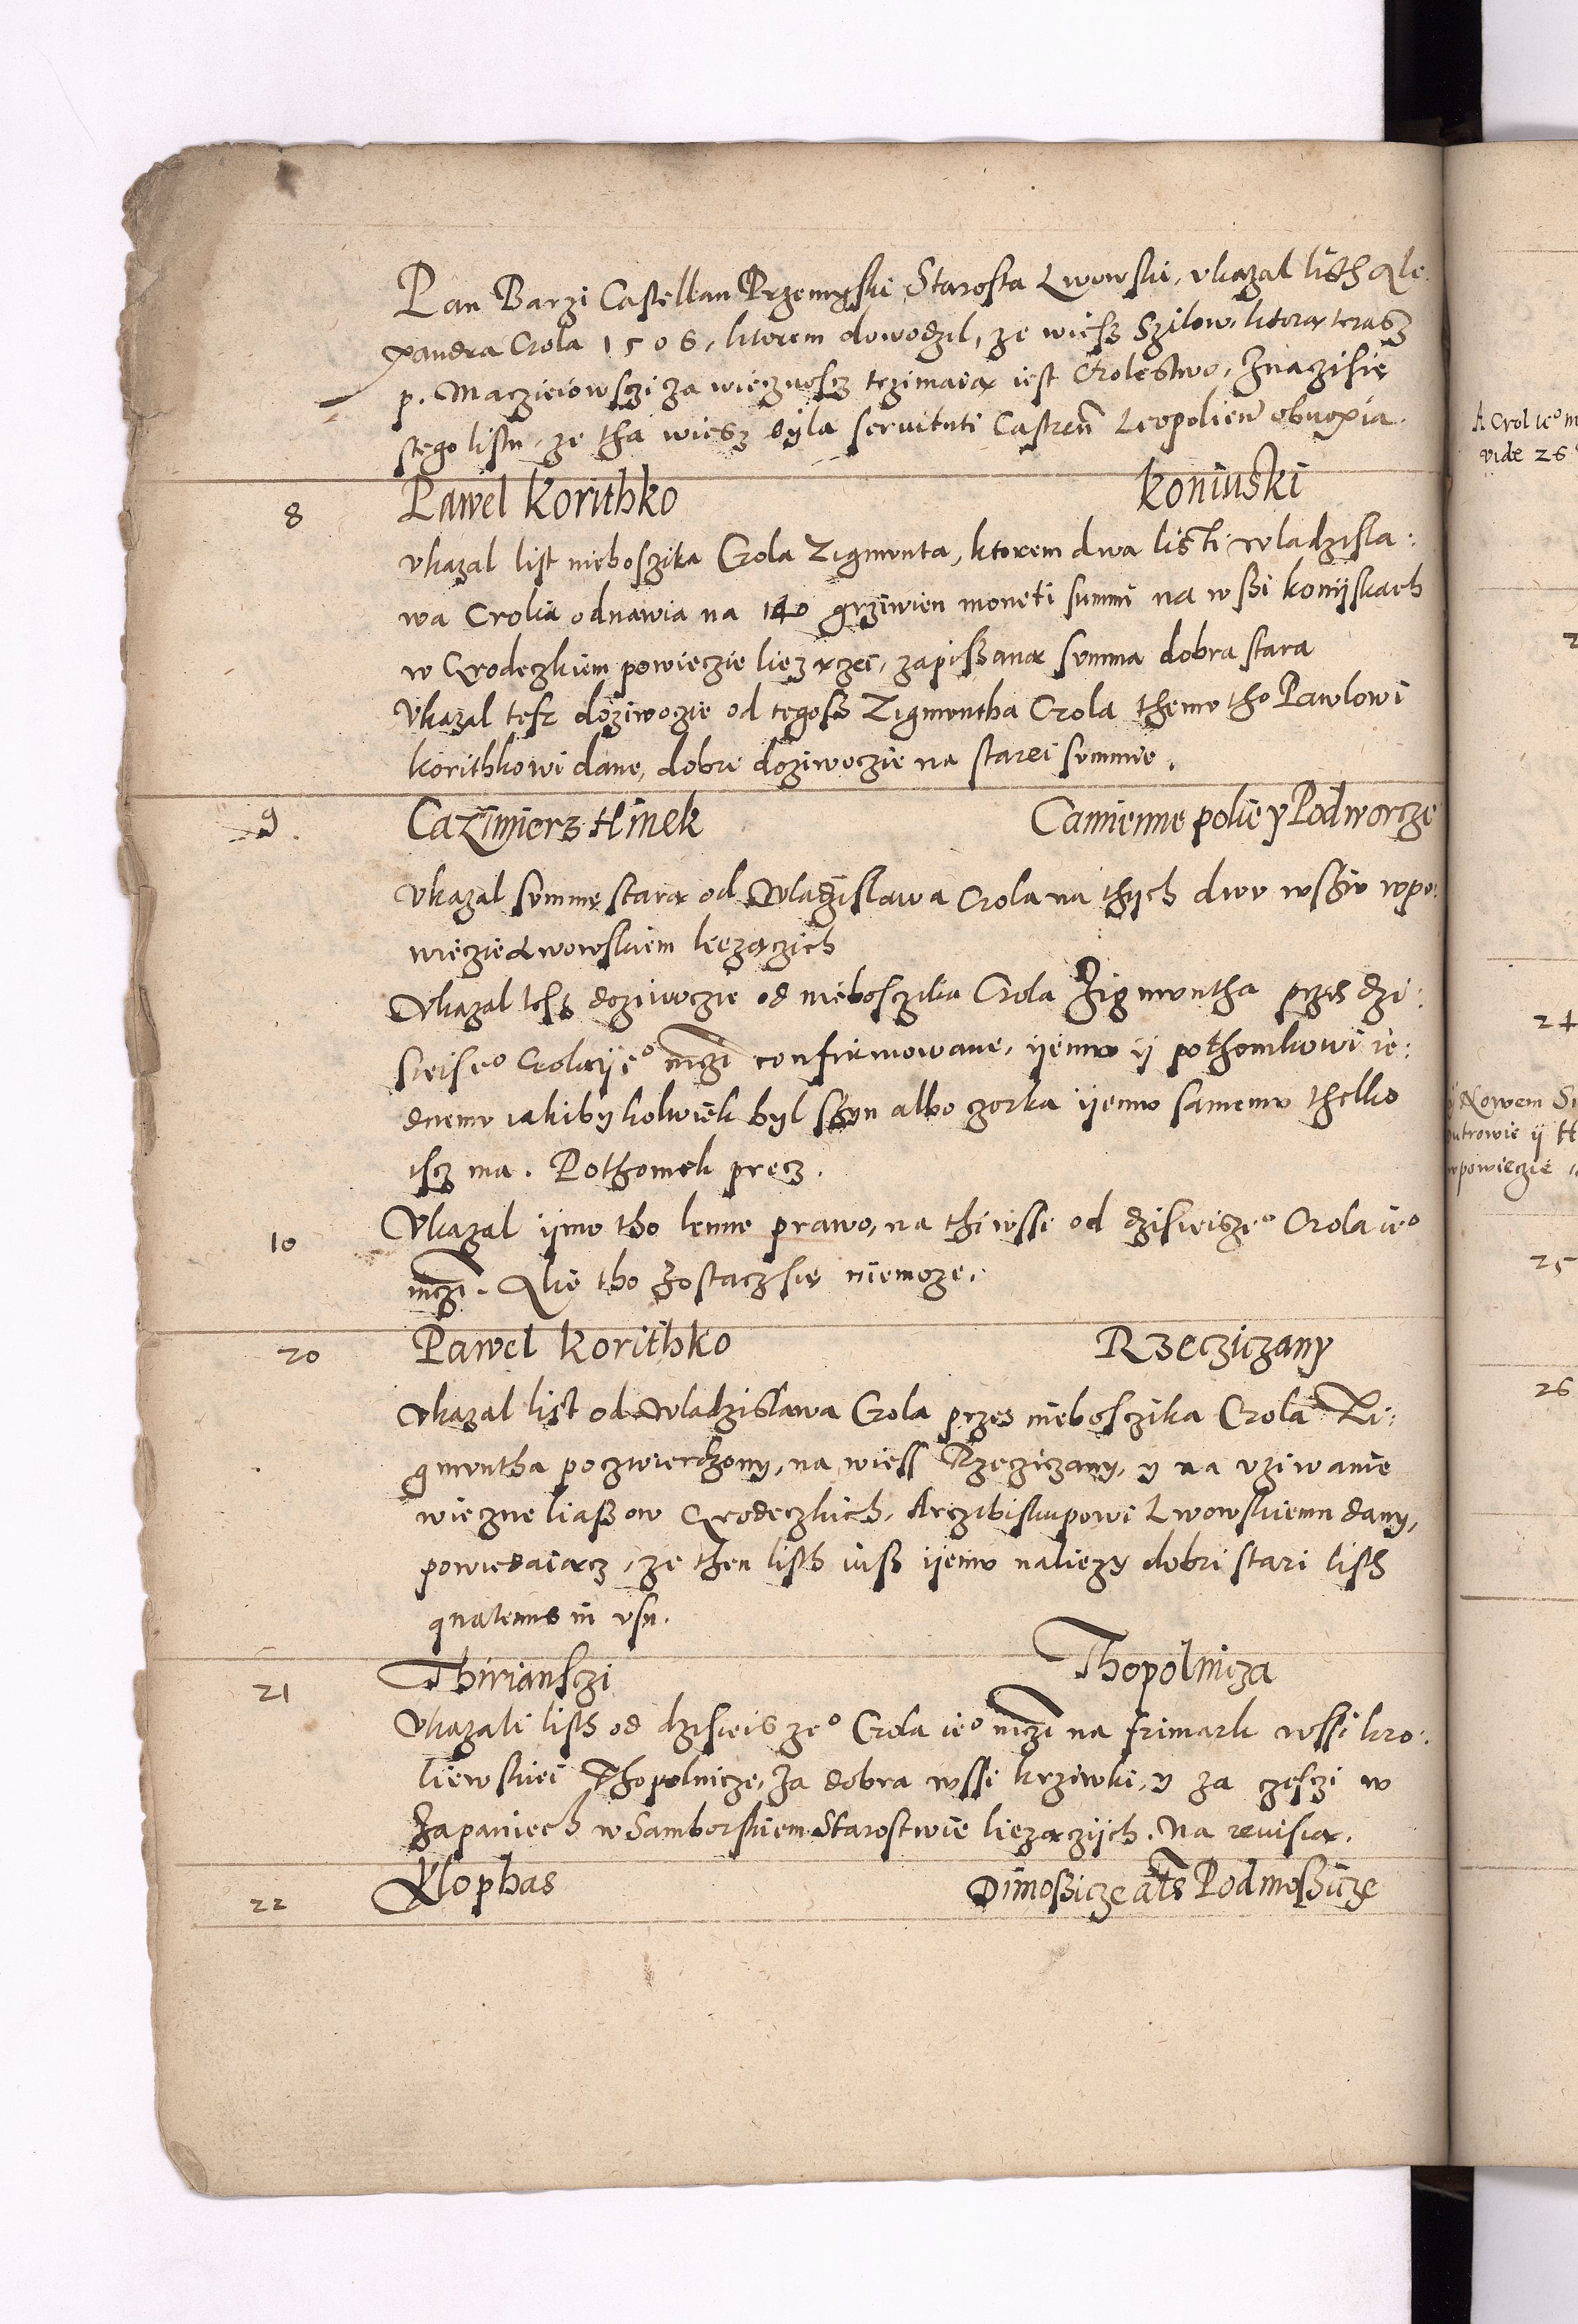 Pan Barzi Castellan Przemyski Starosta Lwowski, vkazal listh Ale
xandra Crola 1506, ktorem dowodzil, ze wiesz Szilow, ktorą terasz
p. Maczieiowsczi za wiecznoscz trzimaią iest Crolestwo, Znaczisię
stego listu, ze tha wiesz byla seruituti Castren Leopolien obnoxia.
8 Pawel Korithko Koniuski
vkazal list nieboszika Crola Zigmunta, ktorem dwa listi wladzisla:
wa Crolia odnawia na 140 grziwien moneti summi na wssi konijskach
w Grodeczkiem powieczie liezączei, zapissaną summa dobra stara
Vkazal tesz doziwoczie od tegosz Zigmuntha Crola themu tho Pawlowi
korithkowi dane, dobre doziwoczie na starei summie.
9. Cazimierz Hinek Camienne polie y Podworcze
Vkazal summę starą od Wladzislawa Crola na thijch dwu wsziu wpo:
wieczie Lwowskiem liezączich
Vkazal tesz doziwoczie od nieboszcika Crola Zigmuntha przes dzi:
sieiseo Crola ijeo mczi confirmowane, ijemu ij pothomkowi ie:
dnemu iakibykolwiek byl sszyn albo czorka ijemu samemu thelko
iscz ma. Pothomek precz.
10 Vkazal ijmu tho lenne prawo, na thi wssi od dzisieiszeo Crola ieo
mczi. Alie tho zostaczsię niemoze.
20 Pawel Korithko Rzecziczany
vkazal list od wladzislawa Crola przes nieboszczika Crola Zi:
gmuntha poczwierdzony, na wiess Rzecziczany, y na vziwanie
wieczne liassow Grodeczkich, Arczibiskupowi Lwowskiemu dany,
powiedaiącz, ze then listh iusz ijemu naliezy dobri stari listh
quatenus in vsu.
21 Thirianskzi Thopolnicza
Vkazali listh od dzisieiszeo Crola ieo mczi na frimark wssi kro:
liewskiei Thopolnicze, za dobra wssi krziwki, y za czesczi w
Zapaniech w Samborskiem Starostwie liezączijch. Na reuisią.
22 Klophas Dimossicze als Podmossicze
A Crol ieo m
vide 26
24
Nowem
utrowie ij
wpowieczie
25
26